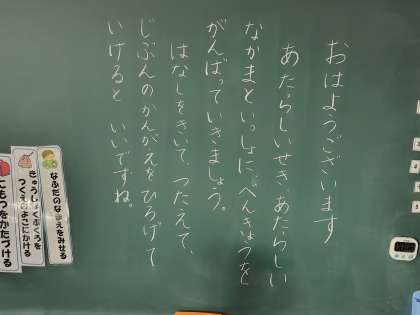 おはようございます
あたらしいせき、あたらしい
なかまと いっしょに、べんきょうを
がんばっていきましょう。
はなしをきいて、つたえて、
じぶんのかんがえをひろげて
いけると いいですね。
なふだのなまえをみせる
きゅうしょくぶくろを
つくえのよこにかける
にもつをかたづける